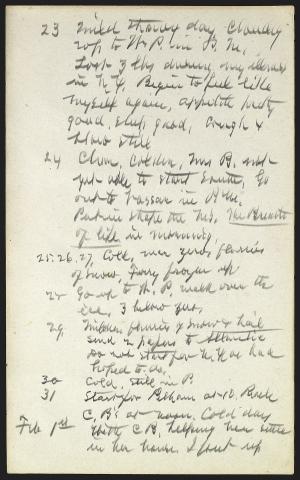 23 Mild thawy day, Cloudy
up to W. P. in P. M.,
Lost 3 lbs during my illness
in N.Y. Begin to feel like
myself again, appetite pretty
good, sleep good, Cough &
blow still
24 Clear, Colder, Mrs B. not
yet able to start South, Go
out to Vassar in P.M.
Put in shape the Ms, The Breath
of life in morning,
25.26.27, Cold, near zero, flurries
of snow, Ivory frozen up
28 Go up to W. P. walk over the
ice, 3 below zero,
29. Milder, flurries of snow & hail
send 2 papers to Atlantic
Do not start for N.Y. as had
hoped to do,
30 Cold, still in P.
31 Start for Pelham at 10, Reach
C, B's at noon. Cold day
Feb 1st With C B, helping her settle
in her house. I put up